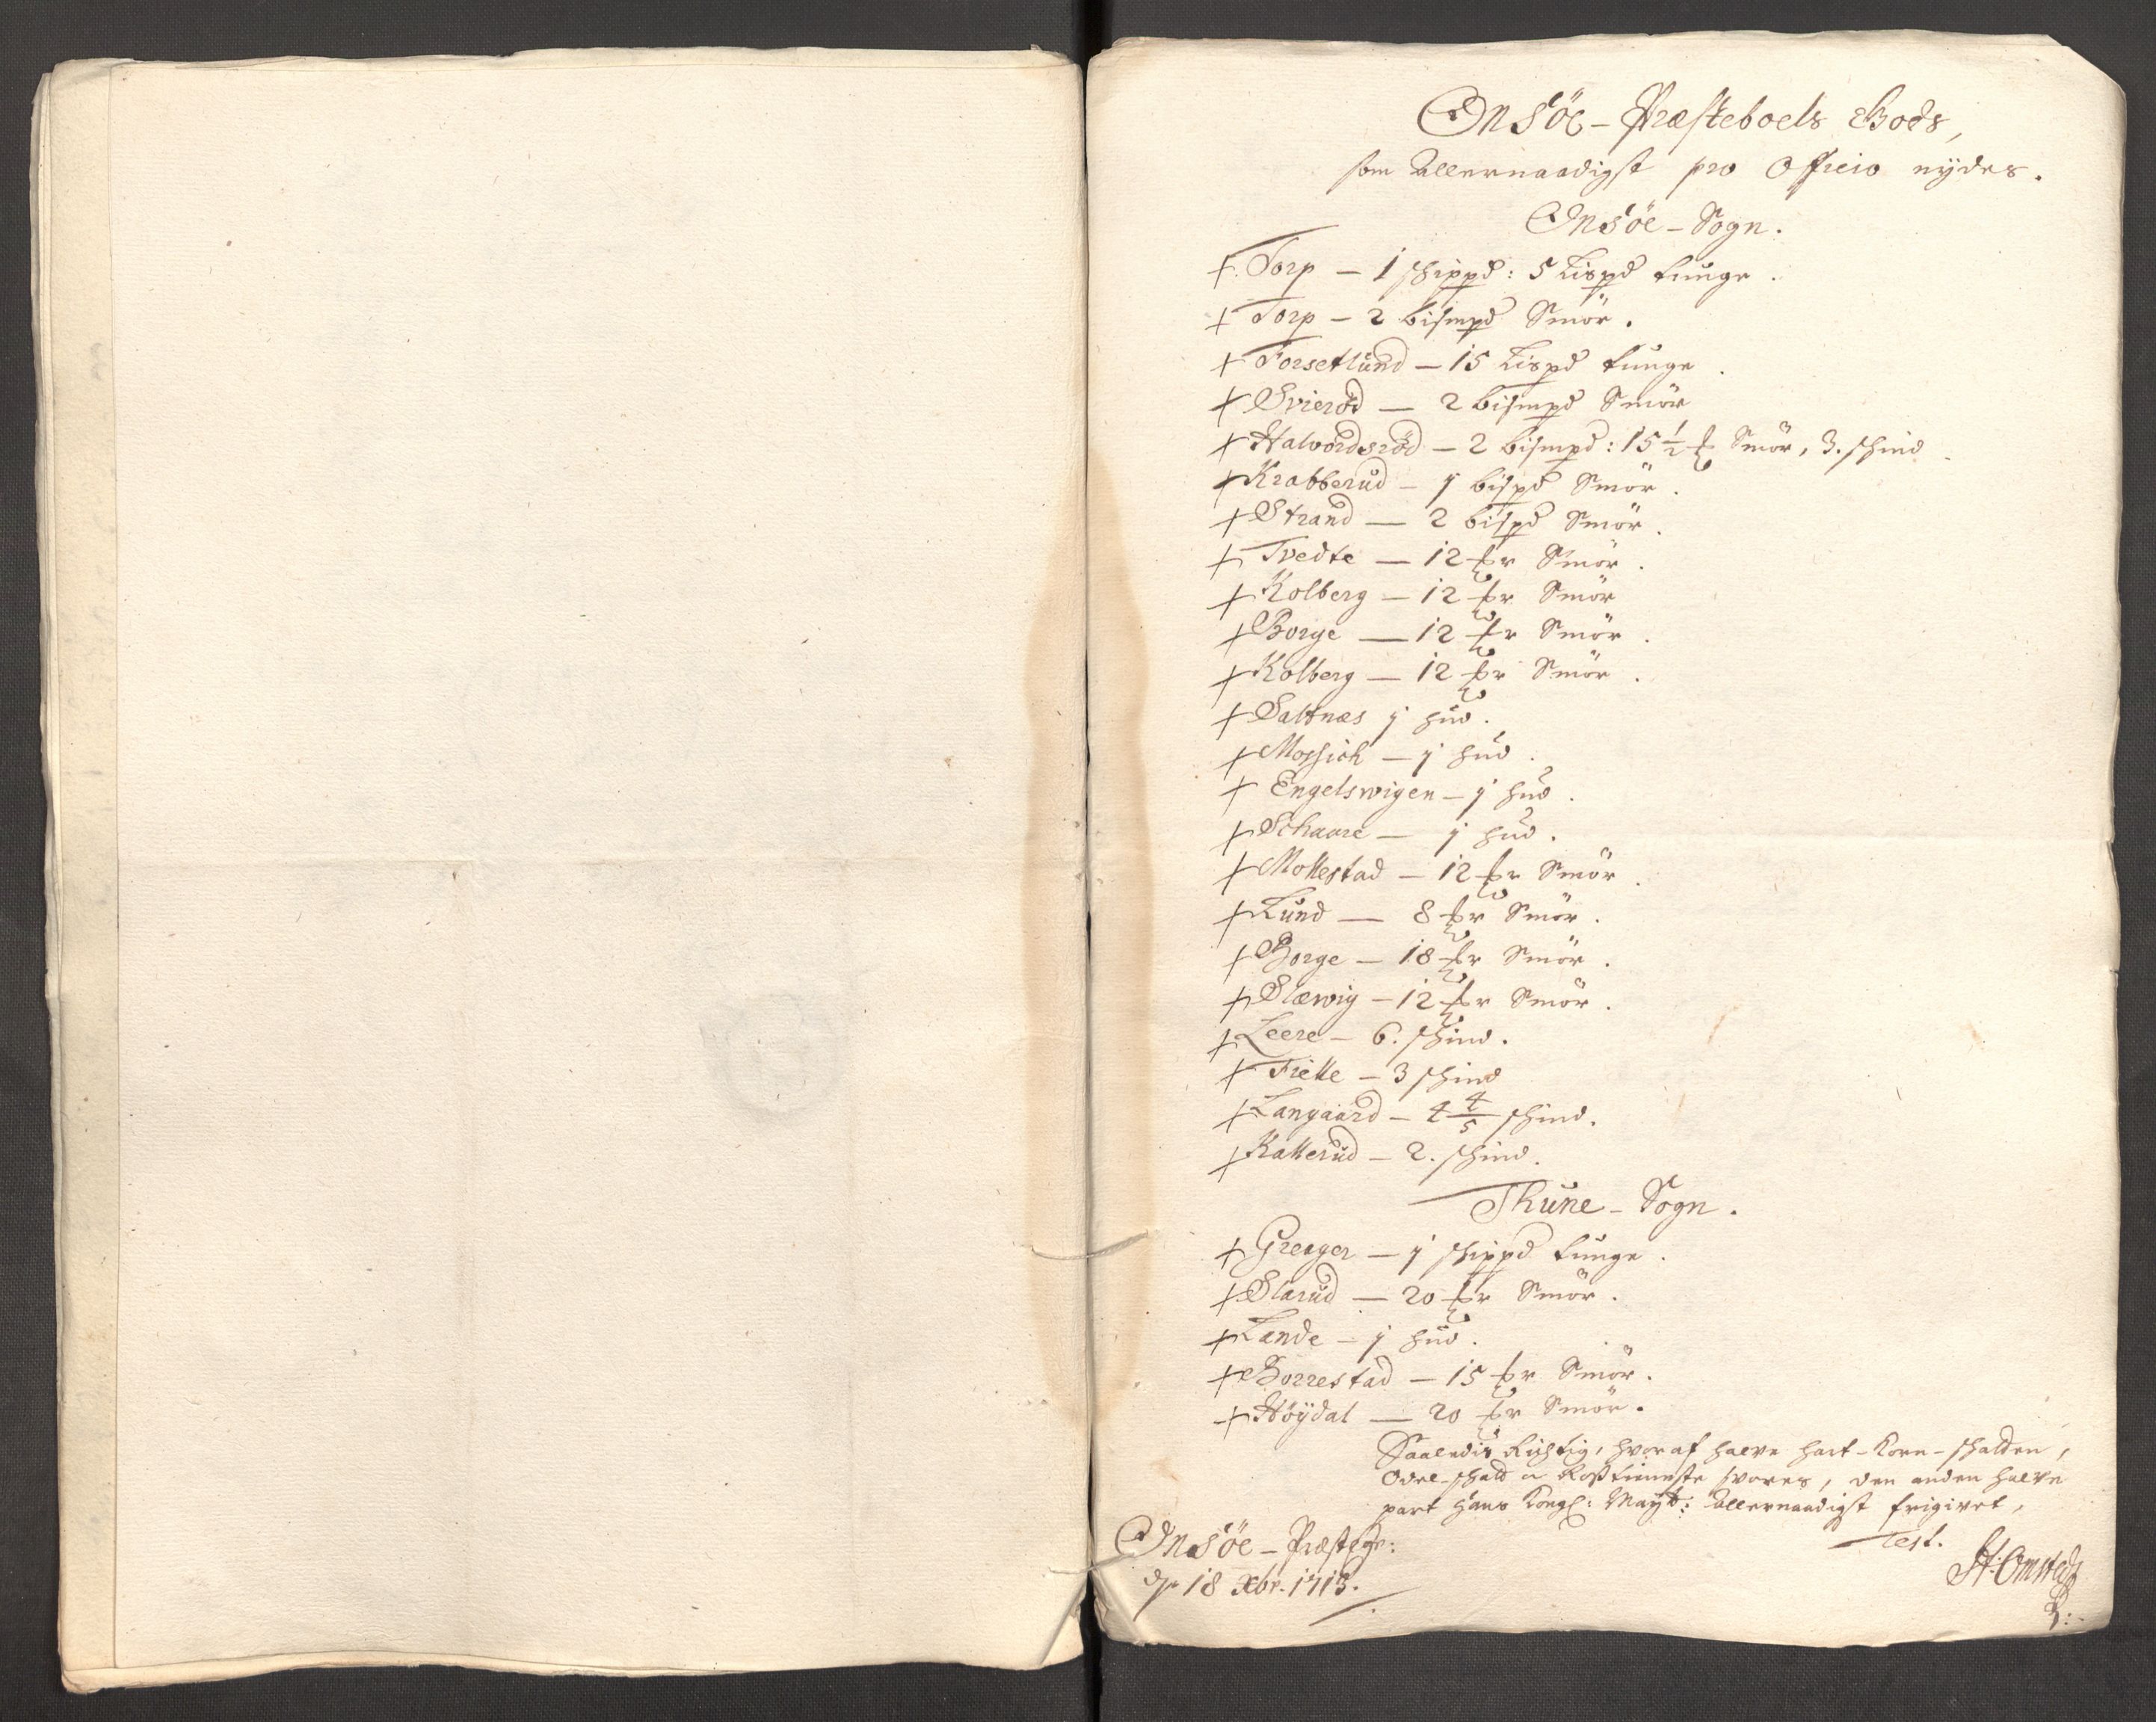 Onsöe - Præsteboels Gods,
som allernaadigst pro Officio nydes.
Onsöe - Sogn.
+ Torp — 1 schippd: 5 Lispd tunge.
+ Torp — 2 bismpd Smör.
+ Torsetlund — 15 Lispd tunge.
+ Svieröd — 2 bismpd Smör
+ Halvordsröd — 2 bismpd: 15½ ℔ Smör, 3. schind
+ Krabberud — j bispd Smör.
+ Strand — 2 bispd Smör.
+ Tvedte — 12 ℔r Smör.
+ Kolberg — 12 ℔r Smör
+ Borge — 12 ℔r Smör.
+ Kolberg — 12 ℔r Smör.
+ Saltnæs j hud.
+ Mossich — j hud.
+ Engelswigen — j hud.
+ Schaare — j hud.
+ Mollestad — 12 ℔r Smör.
+ Lund — 8 ℔r Smör.
+ Borge — 18 ℔r Smör.
+ Slæwig — 12 ℔r Smör.
+ Leere — 6. schind.
+ Trelle — 3 schind
+ Langaard — 4 4/5 schind.
+ Kallerud — 2. schind.
Thune - Sogn.
+ Greager — j schippd tunge.
+ Slarud — 20 ℔r Smör.
+ Lande — j hud.
+ Borrestad — 15 ℔r Smör.
+ Höydal — 20 ℔r Smör.
Saaledis Rigtig, hvoraf halve hart-Korn-schatten,
Odel-schatt a Rosstieniste svares, den anden halve
part hans Kongl: Mayt: allernaadigst frigivet,
Test.
Onsöe - Præstegr:
dn 18 Xbr. 1713.
H: Omsted